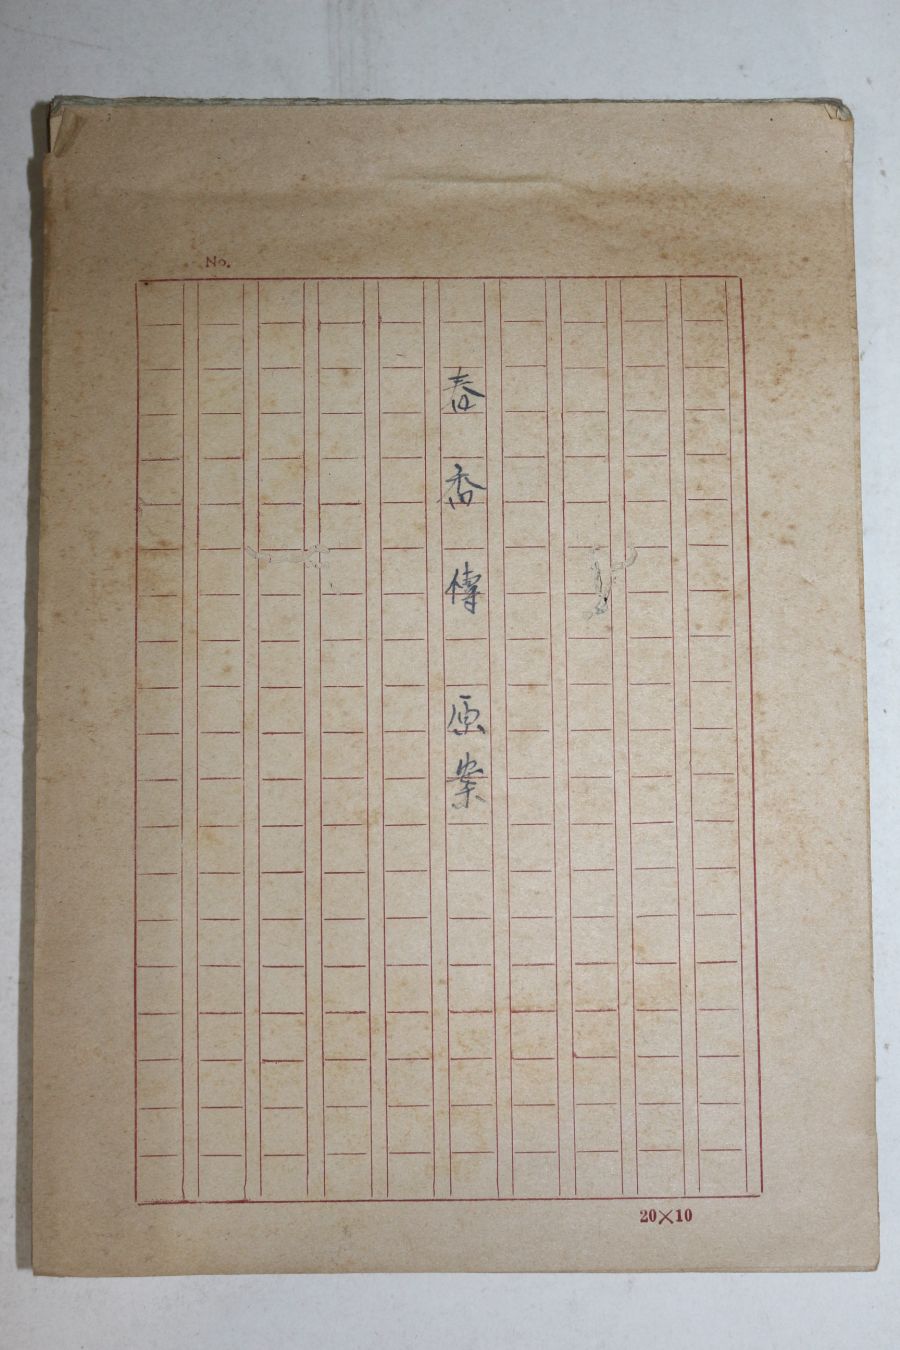 No.
春香傳 原案
20×10